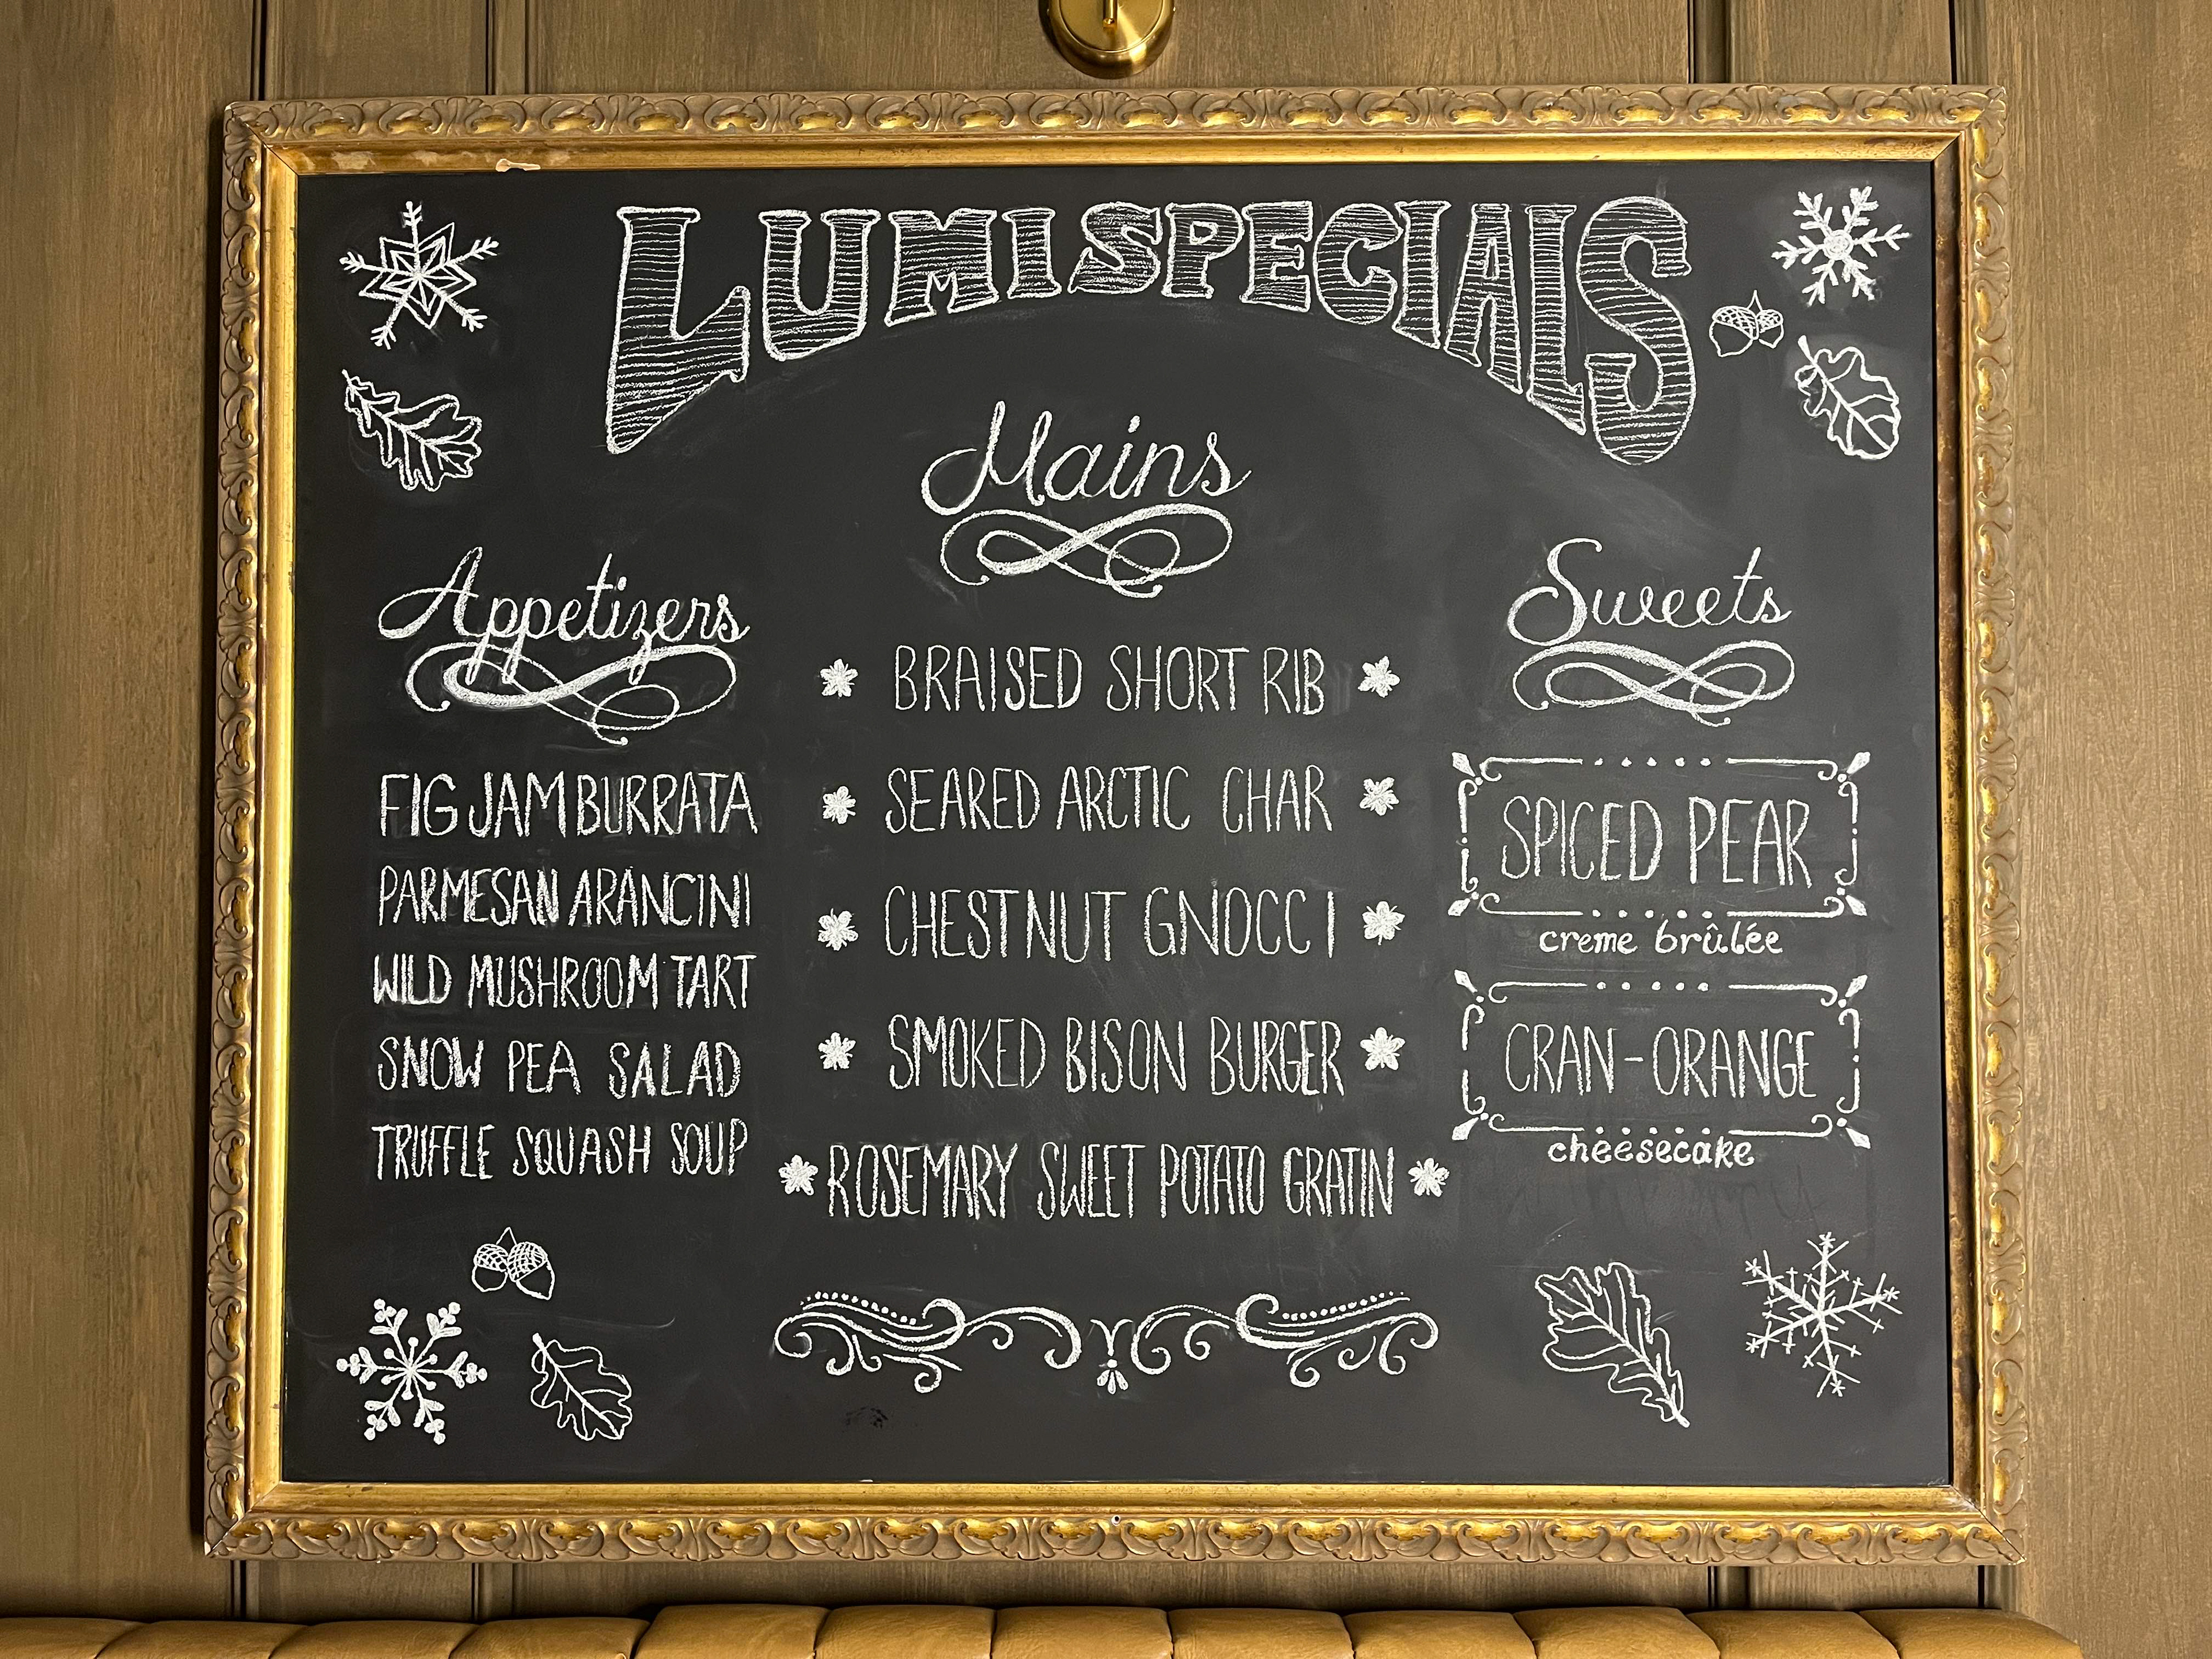 LUMI SPECIALS
Appetizers
FIG JAM BURRATA
PARMESAN ARANCINI
WILD MUSHROOM TART
SNOW PEA SALAD
TRUFFLE SQUASH SOUP
Mains
BRAISED SHORT RIB
SEARED ARCTIC CHAR
CHESTNUT GNOCCI
SMOKED BISON BURGER
ROSEMARY SWEET POTATO GRATIN
Sweets
SPICED PEAR
creme brûlée
CRAN-ORANGE
cheesecake